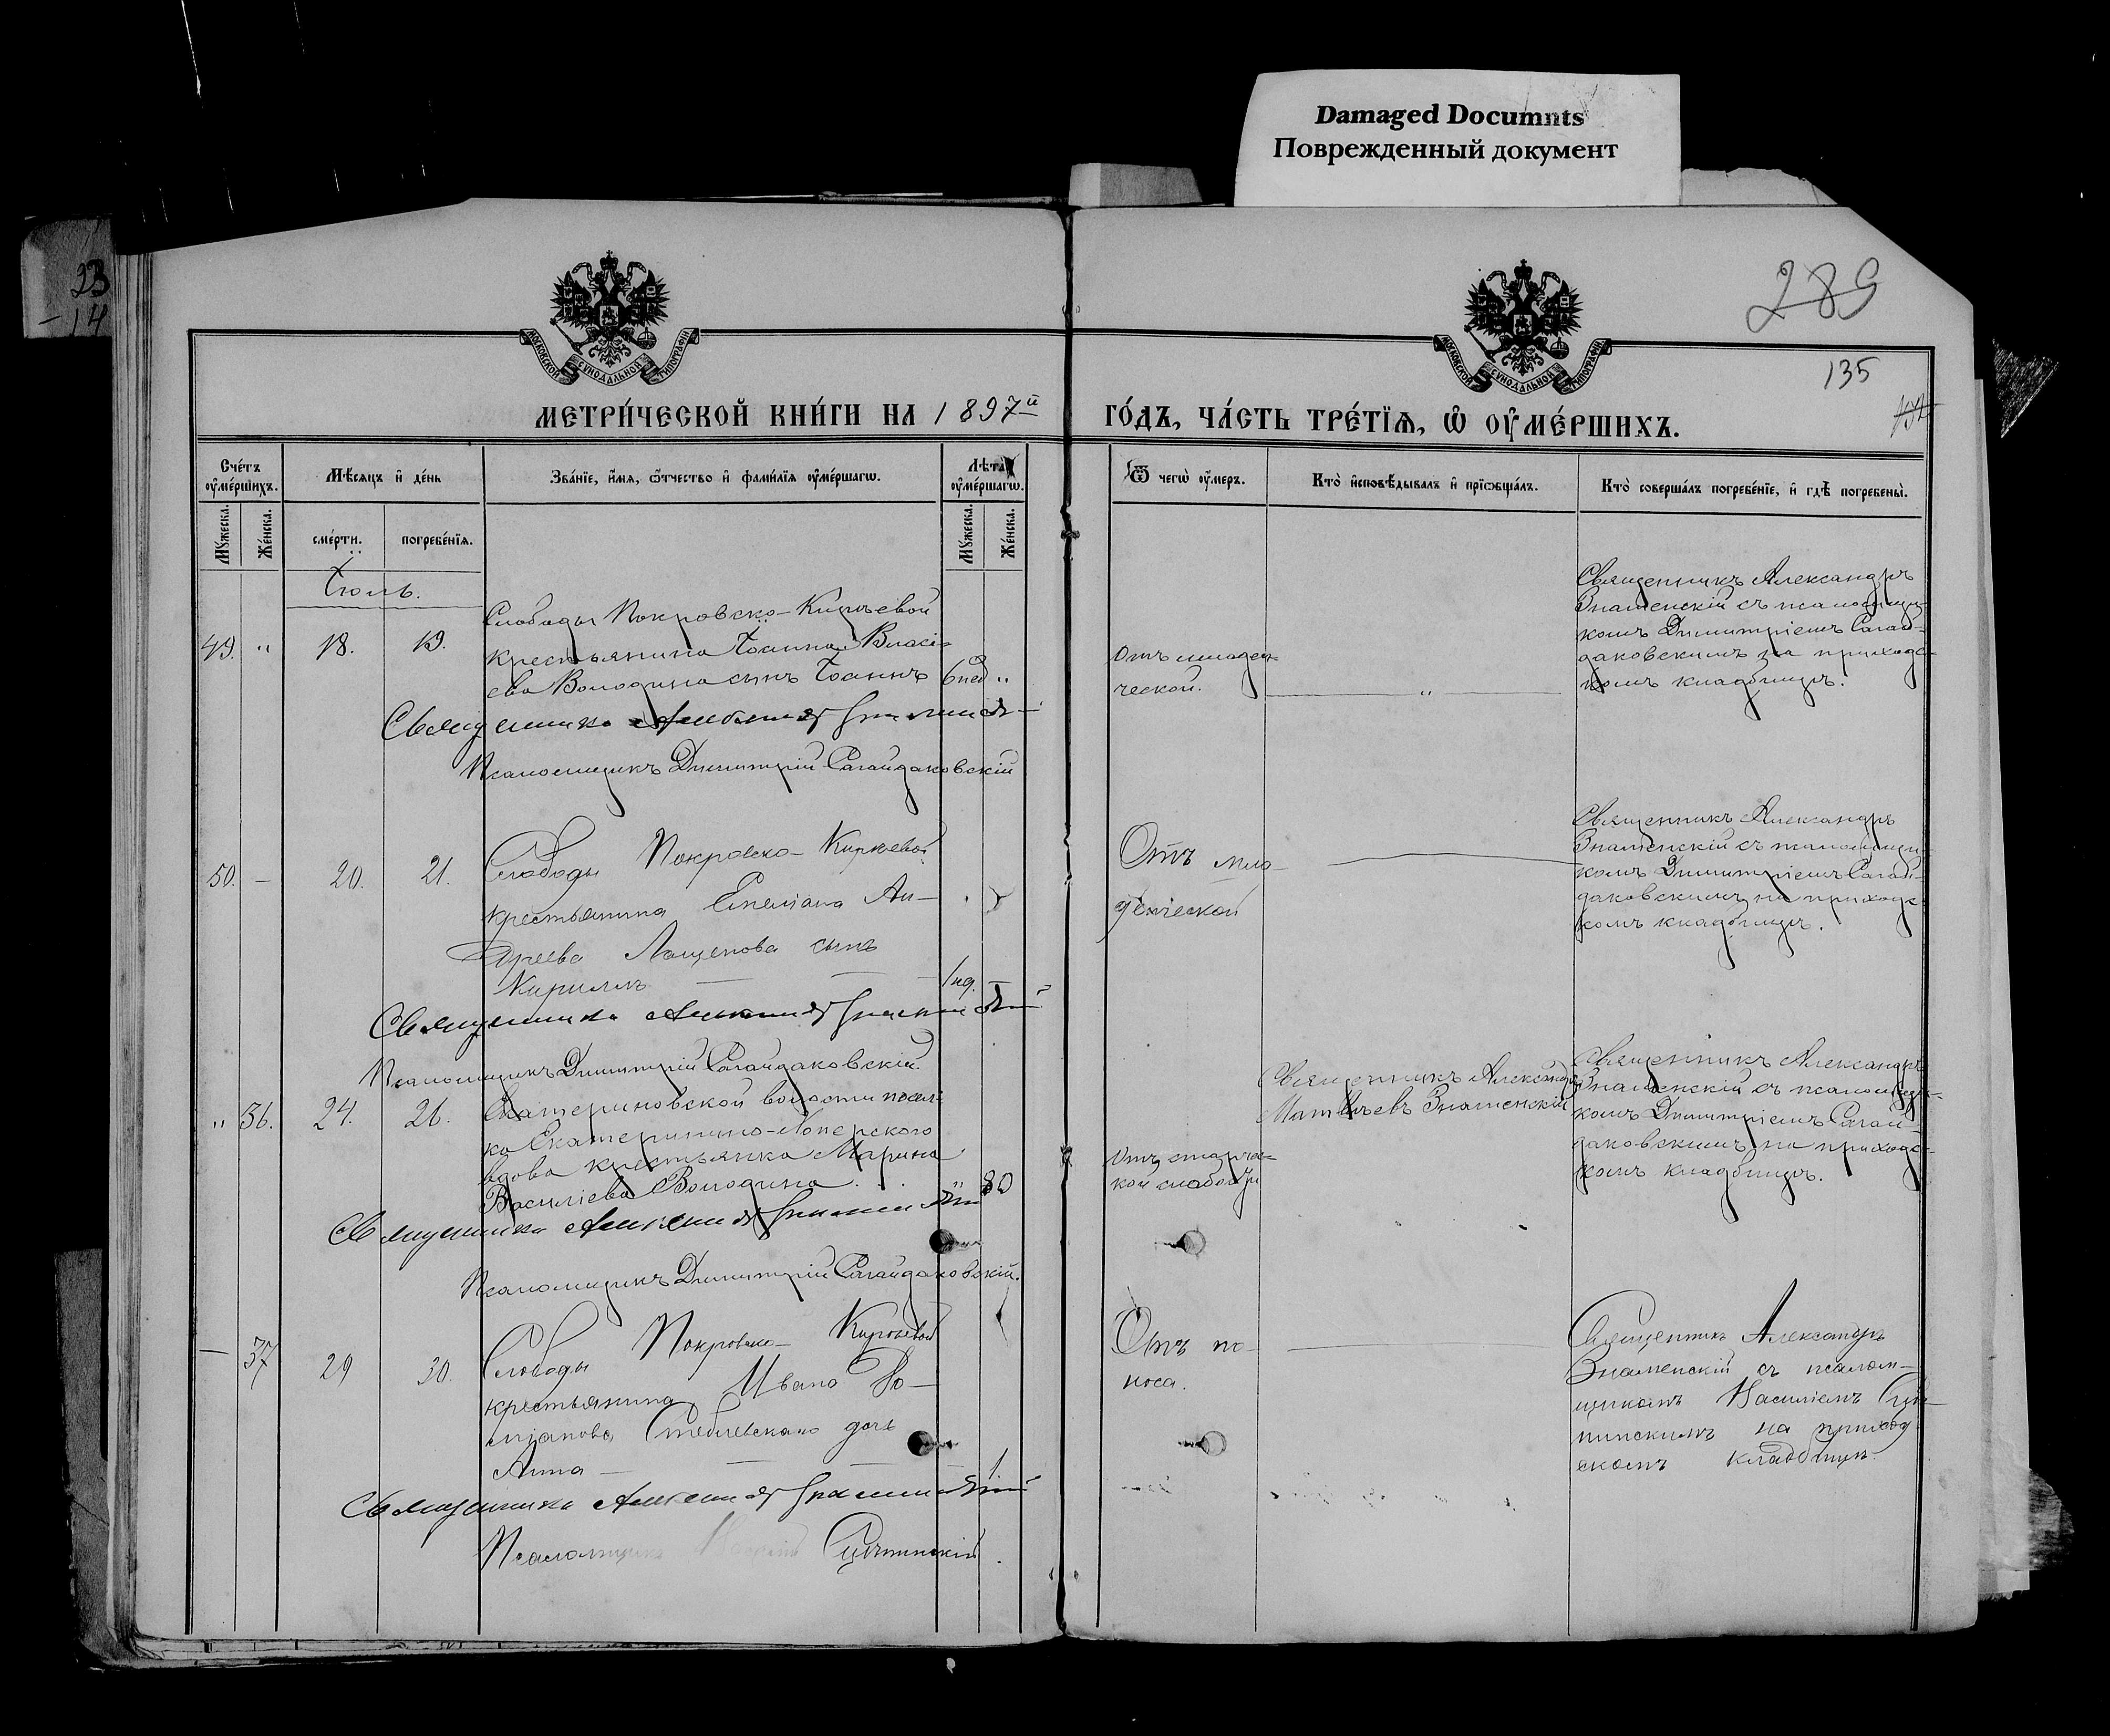 Damaged Documnts
Поврежденный документ
23
- 14
289
135
МОСКОВСКОЙ СѴНОДАЛЬНОЙ ТИПОГРАФІИ
МОСКОВСКОЙ СѴНОДАЛЬНОЙ ТИПОГРАФІИ
МЕТРИ́ЧЕСКОЙ КНИ́ГИ НА 1897й ГО́ДЪ, ЧА́СТЬ ТРЕ́ТІѦ, Ѡ ОУМЕ́РШИХЪ.
Сче́тъ оумершихъ.
Мѣсяцъ и де́нь
Зва́ніе, и́мя, ѻ́тчество и фами́лїѧ оуме́ршагѡ.
Лѣта оуме́ршагѡ.
Ѿ чегѡ̀ оу́меръ.
Кто̀ и҆сповѣ́дывалъ и҆ прїѡбща́лъ.
Кто̀ соверша́лъ погребе́нїе, и҆ гдѣ̀ погребены̀.
Мꙋ́жеска.
Же́нска.
сме́рти.
погребе́нїѧ.
Мꙋ́жеска.
Же́нска.
Іюль.
49. " 18. 19.
Слободы Покровско-Киреевой
крестьянина Іоанна Власі-
ева Володина сынъ Іоаннъ 6 нед "
Отъ младен-
ческой.
"
Священникъ Александръ
Знаменскій съ псаломщи-
комъ Димитріемъ Сагай-
даковскимъ на приходс-
комъ кладбищѣ.
Священникъ Александръ Знаменскій
Псаломщикъ Димитрій Сагайдаковскій
50. — 20. 21.
Слободы Покровско-Киреевой
крестьянина Емеліана Ан-
дреева Лащенова сынъ
Кириллъ — — — 1 нд. —
Отъ мла-
денческой
Священникъ Александръ
Знаменскій съ псаломщи-
комъ Димитріемъ Сагай-
даковскимъ на приходс-
комъ кладбищѣ.
Священникъ Александръ Знаменскій
Псаломщикъ Димитрій Сагайдаковскій.
" 36. 24. 26.
Екатериновской волости посел-
ка Екатеринино-Хоперского
вдова крестьянка Марина
Василіева Володина . . " 80
Отъ старчес-
кой слабости
Священникъ Александръ
Матвѣевъ Знаменскій
Священникъ Александръ
Знаменскій съ псаломщи-
комъ Димитріемъ Сагай-
даковскимъ на приходс-
комъ кладбищѣ.
Священникъ Александръ Знаменскій
Псаломщикъ Димитрій Сагайдаковскій.
— 37 29 30.
Слободы Покровско-Киреевой
крестьянина Ивана
Стеблевскаго дочь
Анна — — — — 1.
Отъ по-
носа.
Священникъ Александръ
Знаменскій съ псалом-
щикомъ Василіемъ
на приход-
скомъ кладбищѣ.
Священникъ Александръ Знаменскій
Псаломщикъ